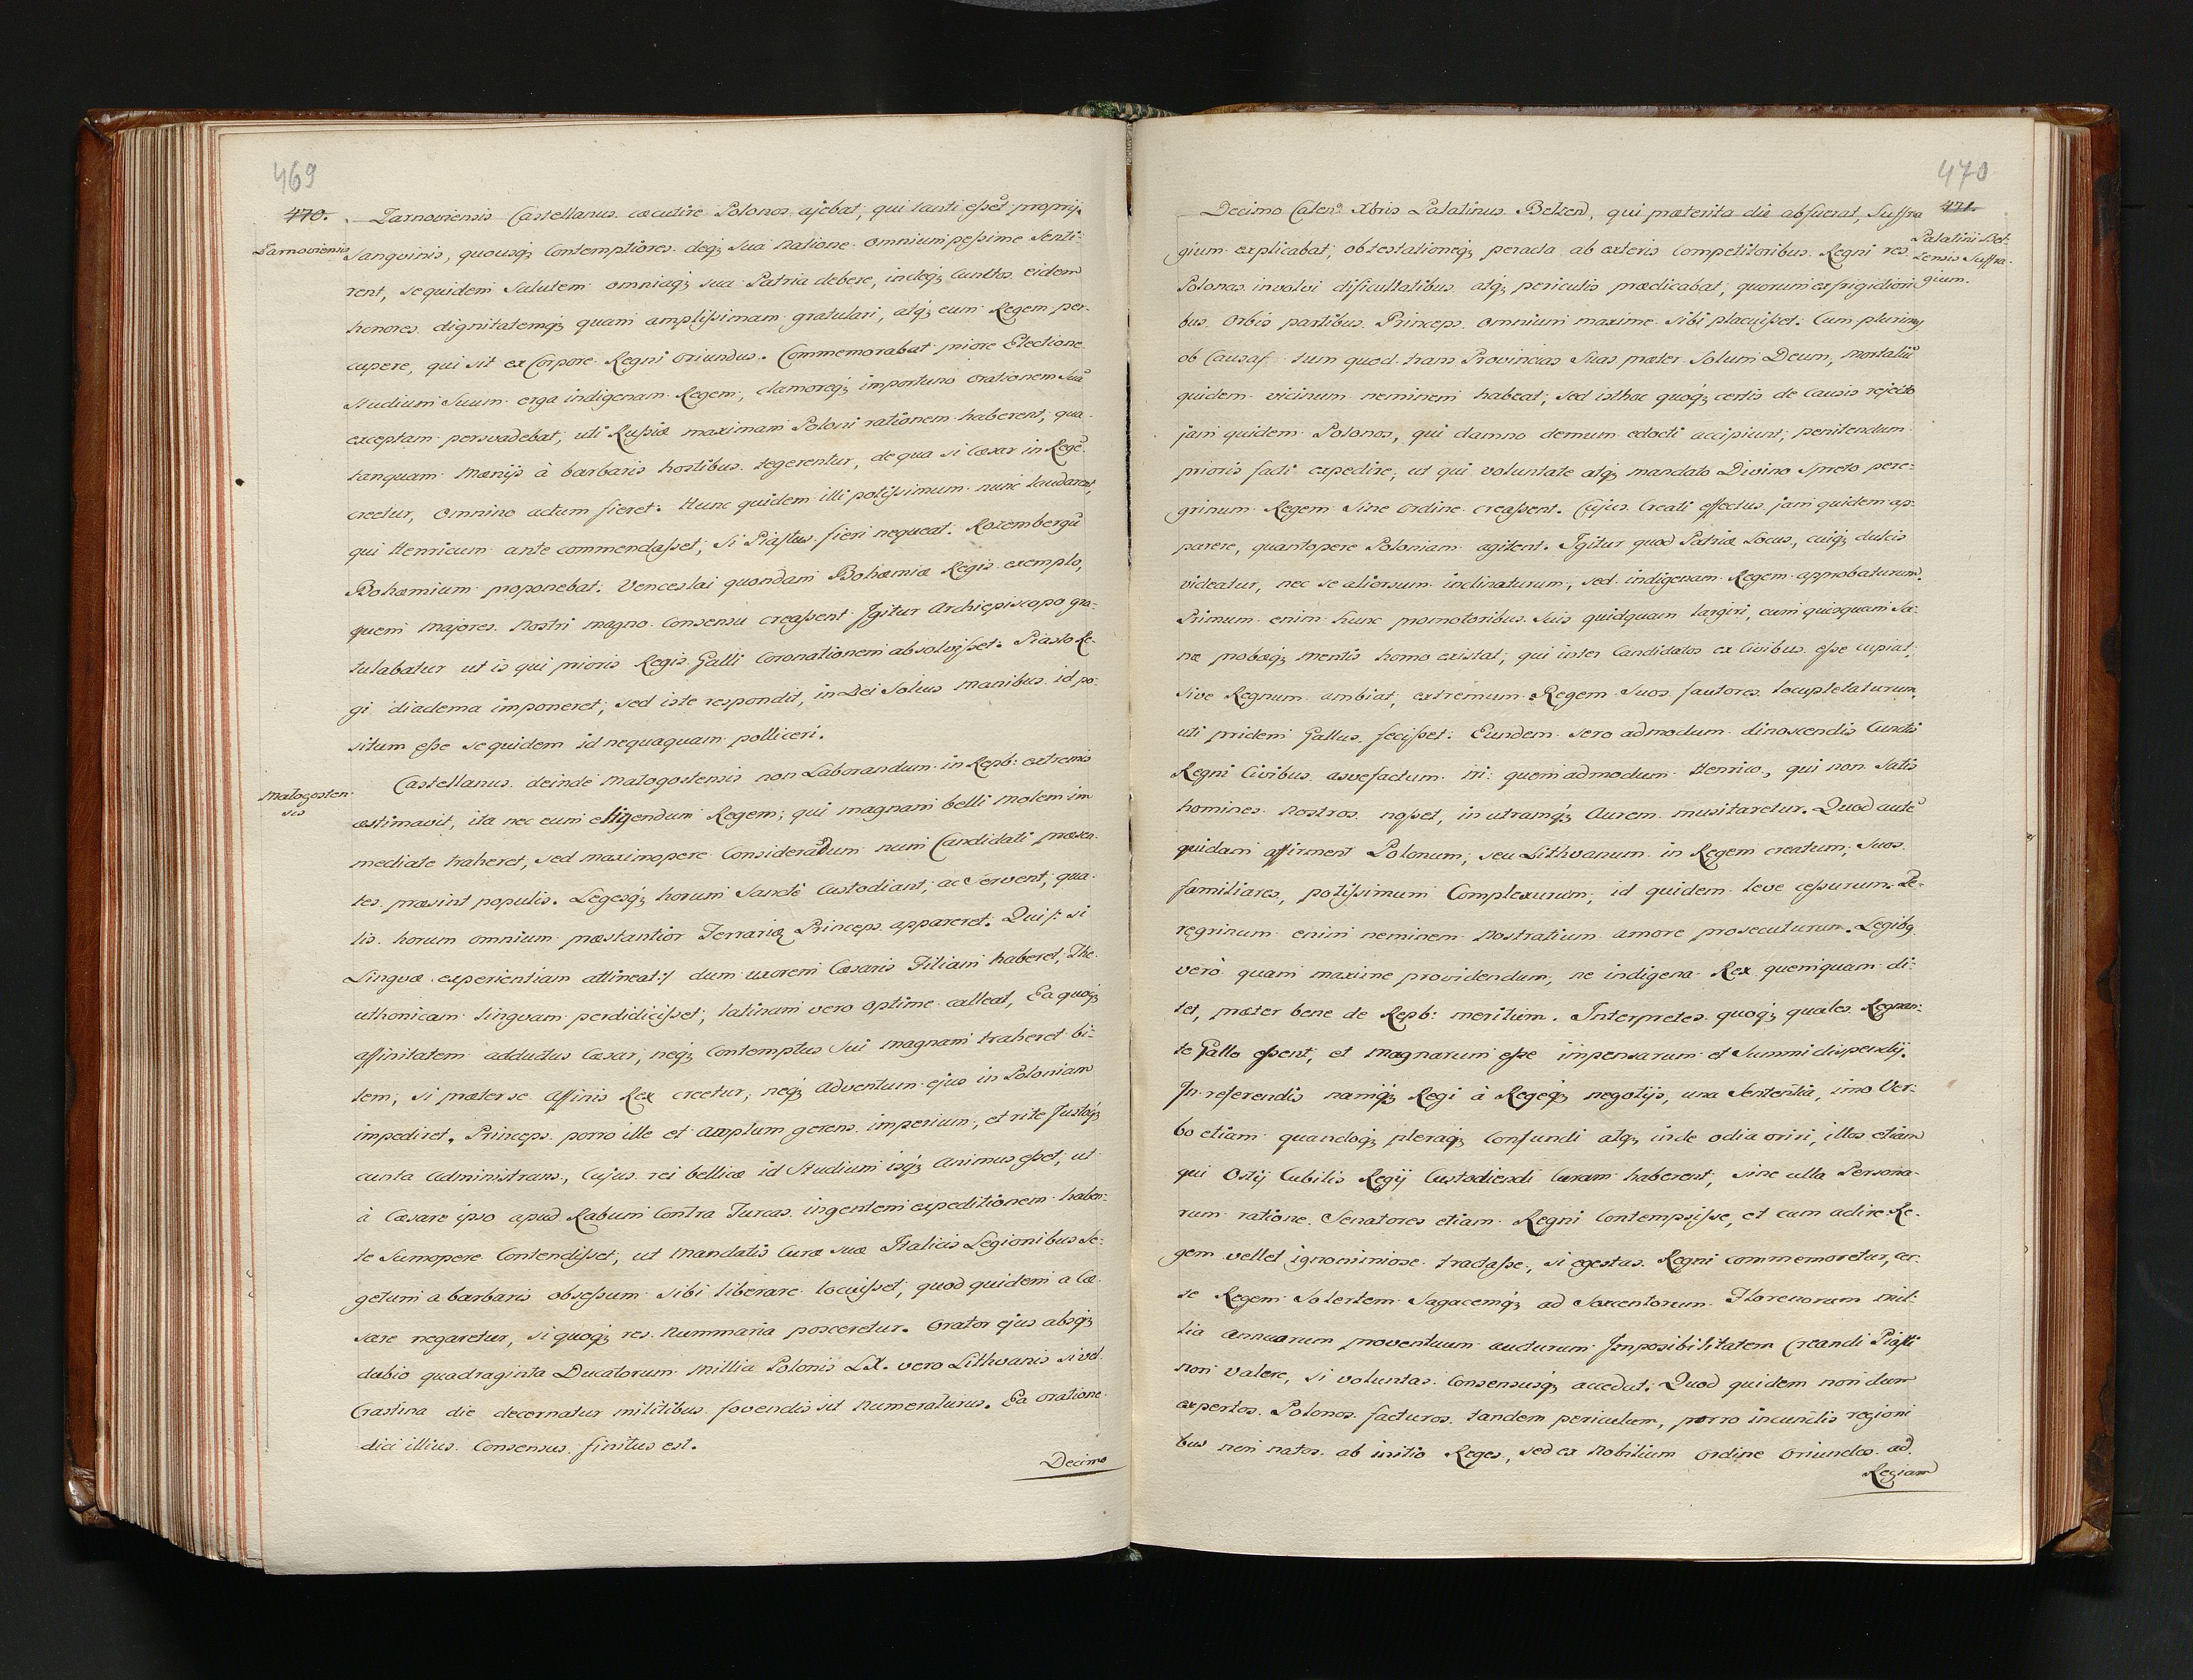 469
470.
Zarnoviensis
Zarnoviensis Castellanus cæcutire Polonos ajebat, qui tanti eßet proprij
sanqvinis, quousq; Contemptiores deq; sua Natione omnium peßime senti-
rent, se quidem salutem omniaq; sua Patria debere, indeq; Cunctos eidem
honores dignitatemq; quam amplißimam gratulari, atq; eum Regem per-
cupere, qui sit ex Corpore Regni oriundus. Commemorabat priore Electione
studium suum erga indigenam Regem, clamoreq; importuno orationem suã
exceptam persvadebat, uti Rußiæ maximam Poloni rationem haberent, qua
tanquam Mœnijs à barbaris hostibus tegerentur, de qua si Cæsar in Regẽ
creetur, omnino actum fieret. Hunc quidem illi potißimum nunc laudarent,
qui Henricum ante commendaßet, si Piastus fieri nequeat. Rozembergũ
Bohœmium proponebat. Venceslai quondam Bohœmiæ Regis exemplo,
quem Majores Nostri magno Consensu creaßent Igitur Archiepiscopo gra-
tulabatur ut is qui prioris Regis Galli Coronationem absolvißet. Piasto Re-
gi diadema imponeret, sed iste respondit, in Dei Solius Manibus id po-
situm eße se quidem id nequaquam polliceri.
Matogosten-
sis
Castellanus deinde Matogostensis non Laborandum in Repb: extremis
æstimavit, ita nec eum eligendum Regem; qui magnam belli Molem im
mediate traheret, sed maximopere Considerandum num Candidati præsen-
tes præsint populis. Legesq; horum Sancte Custodiant, ac servent, qua-
lis horum omnium præstantior Ferrariæ Princeps appareret. Qui /: si
Lingvæ experientiam attineat :/ dum uxorem Cæsaris Filiam haberet, The-
uthonicam Lingvam perdidicißet, latinam vero optime calleat, Ea quoq;
affinitatem adductus Cæsar, neq; Contemptus sui magnam traheret bi-
lem, si præter se Affinis Rex creetur, neq; Adventum ejus in Poloniam
impediret. Princeps porro ille et amplum gerens imperium, et rite Justoq;
cunta administrans, Cujus rei bellicæ id Studium isq; Animus eßet, ut
à Cæsare ipso apud Rabum Contra Turcas ingentem expeditionem haben-
te Sumopere Contendißet, ut Mandatis Curæ suæ Italicis Legionibus Se-
getum a barbaris obseßum sibi liberare locuißet, quod quidem a Cæ-
sare negaretur, si quoq; res Nummaria posceretur. Orator ejus absq;
dubio quadraginta Ducatorum Millia Polonis LX. vero Lithvanis si vel
Crastina die decernatur militibus fovendis sit Numeraturus. Ea oratione
diei illius Consensus finitus est.
Decimo
470
471.
Palatini Bel-
zensis Suffra-
gium.
Decimo Calend Xbris Palatinus Belzens, qui præterita die abfuerat, Suffra
gium explicabat, obtestationeq; peracta ab exteris Competitoribus Regni res
Polonas involvi dificultatibus atq; periculis prædicabat, quorum ex frigidiori-
bus Orbis partibus Princeps omnium maxime sibi placuißet. Cum plurimis
ob Causas tum quod trans Provincias suas præter Solum Deum, mortaliũ
quidem vicinum neminem habeat, sed isthac quoq; certis de Causis rejecto
jam quidem Polonos, qui damno demum edocti accipiunt, penitendum
prioris facti expedire, ut qui voluntate atq; mandato Divino Spreto pere-
grinum Regem sine ordine creaßent. Cujus Creati effectus jam quidem ap-
parere, quantopere Poloniam agitent. Igitur quod Patriæ Locus, cuiq; dulcis
videatur, nec se aliorsum inclinaturum, sed indigenam Regem approbaturum.
Primum enim hunc promotoribus suis quidquam largiri, cum quisquam Sa-
næ probæq; Mentis homo existat, qui inter Candidatos ex Civibus eße cupiat,
sive Regnum ambiat, extremum Regem suos fautores locupletaturum,
uti pridem Gallus fecißet. Eundem sero admodum dinoscendis Cunctis
Regni Civibus asvefactum iri: quemadmodum Henrico, qui non Satis
homines Nostros noßet, in utramq; Aurem musitaretur. Quod autẽ
quidam affirment Polonum, seu Lithvanum in Regem creatum, suos
familiares, potißimum Complexurum, id quidem leve ceßurum. Pe-
regrinum enim neminem Nostratium amore prosecuturum. Legibq
verò quam maxime providendum, ne indigena Rex quemquam di-
tet, præter bene de Repb: meritum. Interpretes quoq; quales Regnan-
te Gallo eßent, et Magnarum eße impensarum et Summi dispendij.
In referendis namq; Regi à Regeq; negotijs, una Sententia, imo Ver-
bo etiam quandoq; pleraq; Confundi atq; inde odia oriri, illos etiam
qui Ostij Cubilis Regij Custodiendi Curam haberent, sine ulla Persona-
rum ratione Senatores etiam Regni Contempsiße, et cum adire Re-
gem vellet ignominiose tractaße, si egestas Regni commemoretur, cer-
te Regem Solertem Sagacemq; ad Sexcentorum Florenorum mil-
lia annuarum proventuum aucturum Imposibilitatem Creandi Piasti
non valere, si voluntas Consensusq; accedat. Quod quidem non dum
expertos Polonos facturos tandem periculum, porro incunctis regioni
bus non natos ab initio Reges, sed ex Nobilium ordine oriundos ad
Regiam